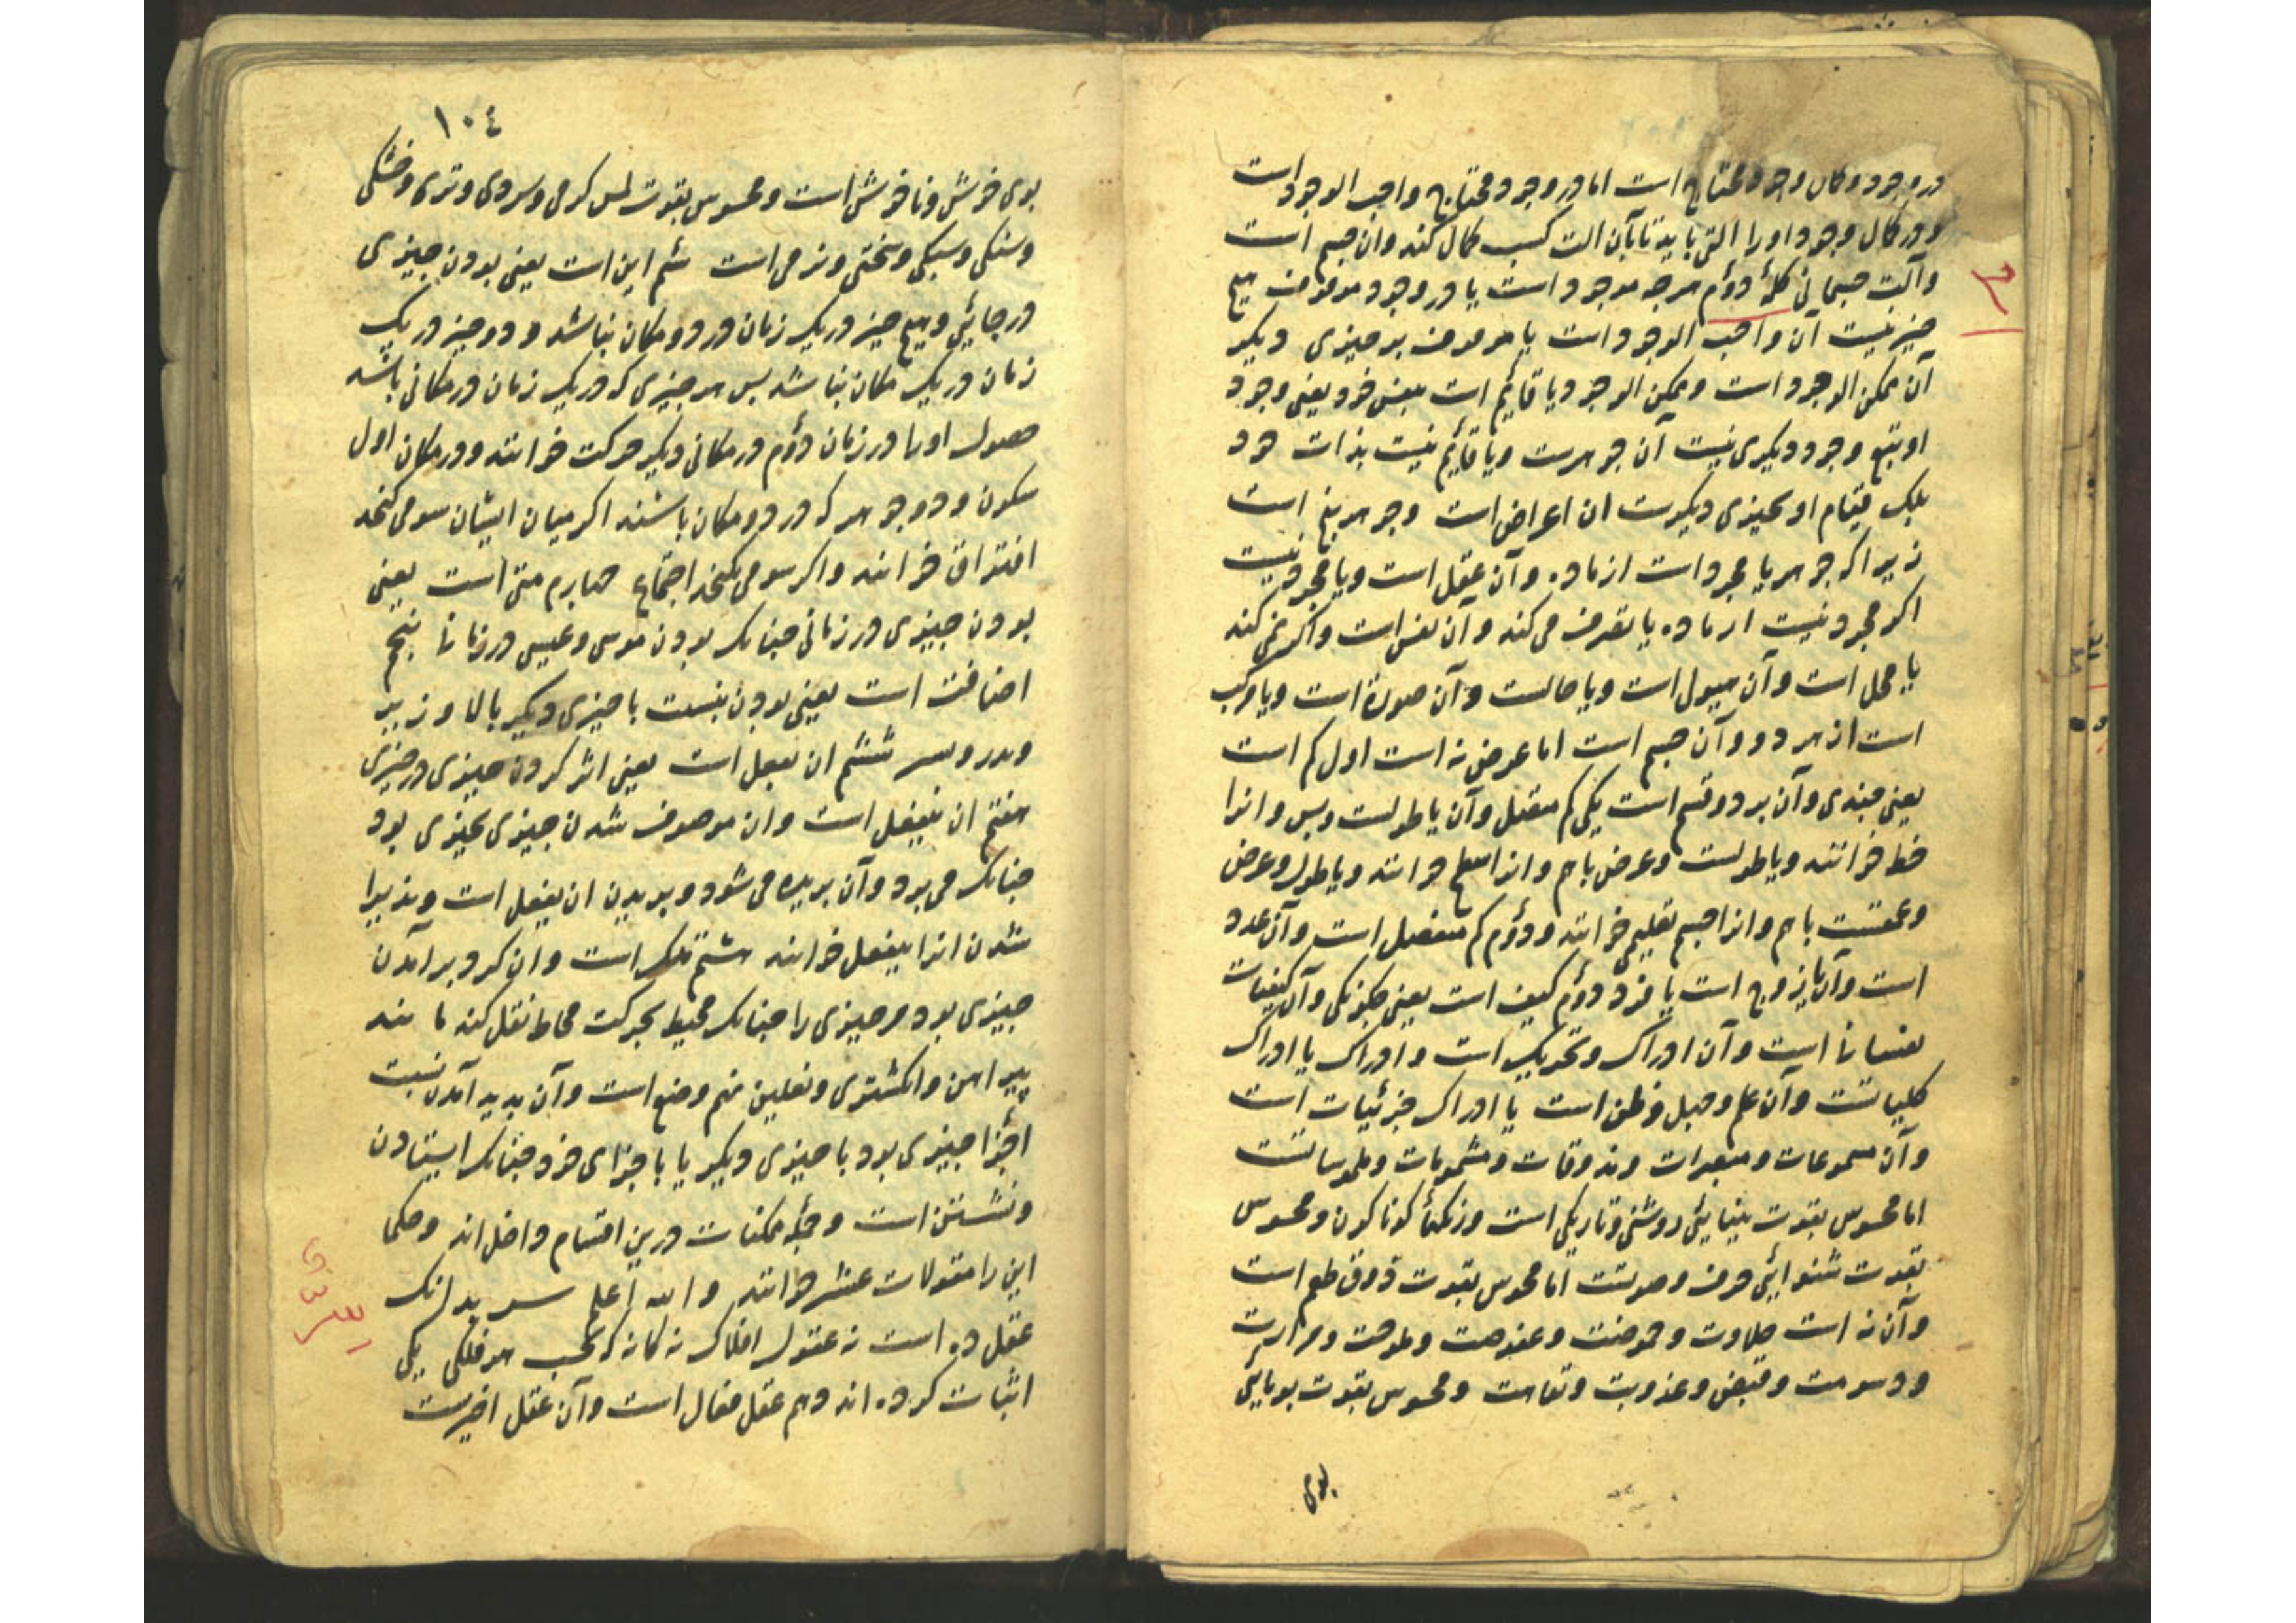 در وجود و کمال وجود محتاج است اما در وجود محتاج واجب الوجود است
و در کمال وجود او را التی باید تا بآن الت کسب کمال کند وان جسم است
وآلت جسمانی کلمۀ دؤم هرچه موجود است یا در وجود موقوف هیچ
چیز نیست آن واجب الوجود است یا موقوف بر چیزی دیکر
آن ممکن الوجود است وممکن الوجود یا قایٔم است بنفس خود یعنی وجود
او بتبع وجود دیکری نیست آن جوهرست ویا قایٔم نیست بذات خود
بلک قیام او بچیزی دیکرست ان اعراض است وجوهر پنج است
زیرا که جوهر یا مجرد است از ماده وآن عقل است ویا مجرد نیست
اکر مجرد نیست از ماده یا تصرف می کند وآن نفس است واکر نمی کند
یا محل است وآن هیولی است ویا حالست وآن صورة است ویا مرکب
است از هر دو وآن جسم است اما عرض نه است اول کم است
یعنی چندی وآن بر دو قسم است یکی کم متصل وآن یا طولست وبس وانرا
خط خوانند ویا طولست وعرض باهم وانرا سطح خوانند ویا طول وعرض
وعمقست باهم وانرا جسم تعلیمی خوانند ودؤم کم منفصل است وآن عدد
است وآن یا زوج است یا فرد دؤم کیف است یعنی چکونکی وآن کیفیات
نفسانی است وآن ادراک وتحریک است وادراک یا ادراک
کلیاتست وآن علم وجهل وظن است یا ادراک جزئیات است
وآن مسموعات ومبصرات ومذوقات ومشمومات وملموساتست
اما محسوس بقوت بینایٔی روشنی وتاریکی است ورنکهأ کوناکون ومحسوس
بقوت شنوایٔی حرف وصوتست اما محسوس بقوت ذوق طعم است
وآن نه است حلاوت وحموضت وعفوصت وملوحت ومرارت
ودسومت وقبض وعذوبت وتفاهت ومحسوس بقوت بویایٔی
بوی
١٠٤
بوی خوش وناخوش است ومحسوس بقوت لمس کرمی وسردی وتری وخشکی
وسنکی وسبکی وسختی ونرمی است سٔم این است یعنی بودن چیزی
در جائی وهیچ چیز در یک زمان در دو مکان نباشد ودو چیز در یک
زمان در یک مکان نباشد پس هر چیزی که در یک زمان در مکانی باشد
حصول او را در زمان دؤم در مکانی دیکر حرکت خوانند ودر مکان اول
سکون ودو جوهر که در دو مکان باشند اکر میان ایشان سومی کنجد
افتراق خوانند واکر سومی نکنجد اجتماع چهارم متی است یعنی
بودن چیزی در زمانی چنانک بودن موسی وعیسی در زمانی پنجم
اضافت است یعنی بودن بنسبت با چیزی دیکر بالا وزیر
وپدر وپسر ششم ان یفعل است یعنی اثر کردن چیزی در چیزی
هفتم ان ینفعل است وان موصوف شدن چیزی بچیزی بود
چنانک می برد وآن بریده می شود وبریدن ان یفعل است وپذیرا
شدن انرا ینفعل خوانند هشتم ملک است وان کرد برآمدن
چیزی بود مر چیزی را چنانک محیط بحرکت محاط نقل کند مانند
پیراهن وانکشتری ونعلین نهم وضع است وآن پدید آمدن نسبت
اجزأ چیزی بود با چیزی دیکر یا با اجزای خود چنانک ایستادن
ونشستن است وجملۀ ممکنات درین اقسام داخل اند وحکما
این را مقولات عشر خوانند والله اعلم بدانک
عقل ده است نه عقول افلاک نه کانه که بحسب هر فلکی یکی
اثبات کرده اند دهم عقل فعال است وآن عقل اخیرست